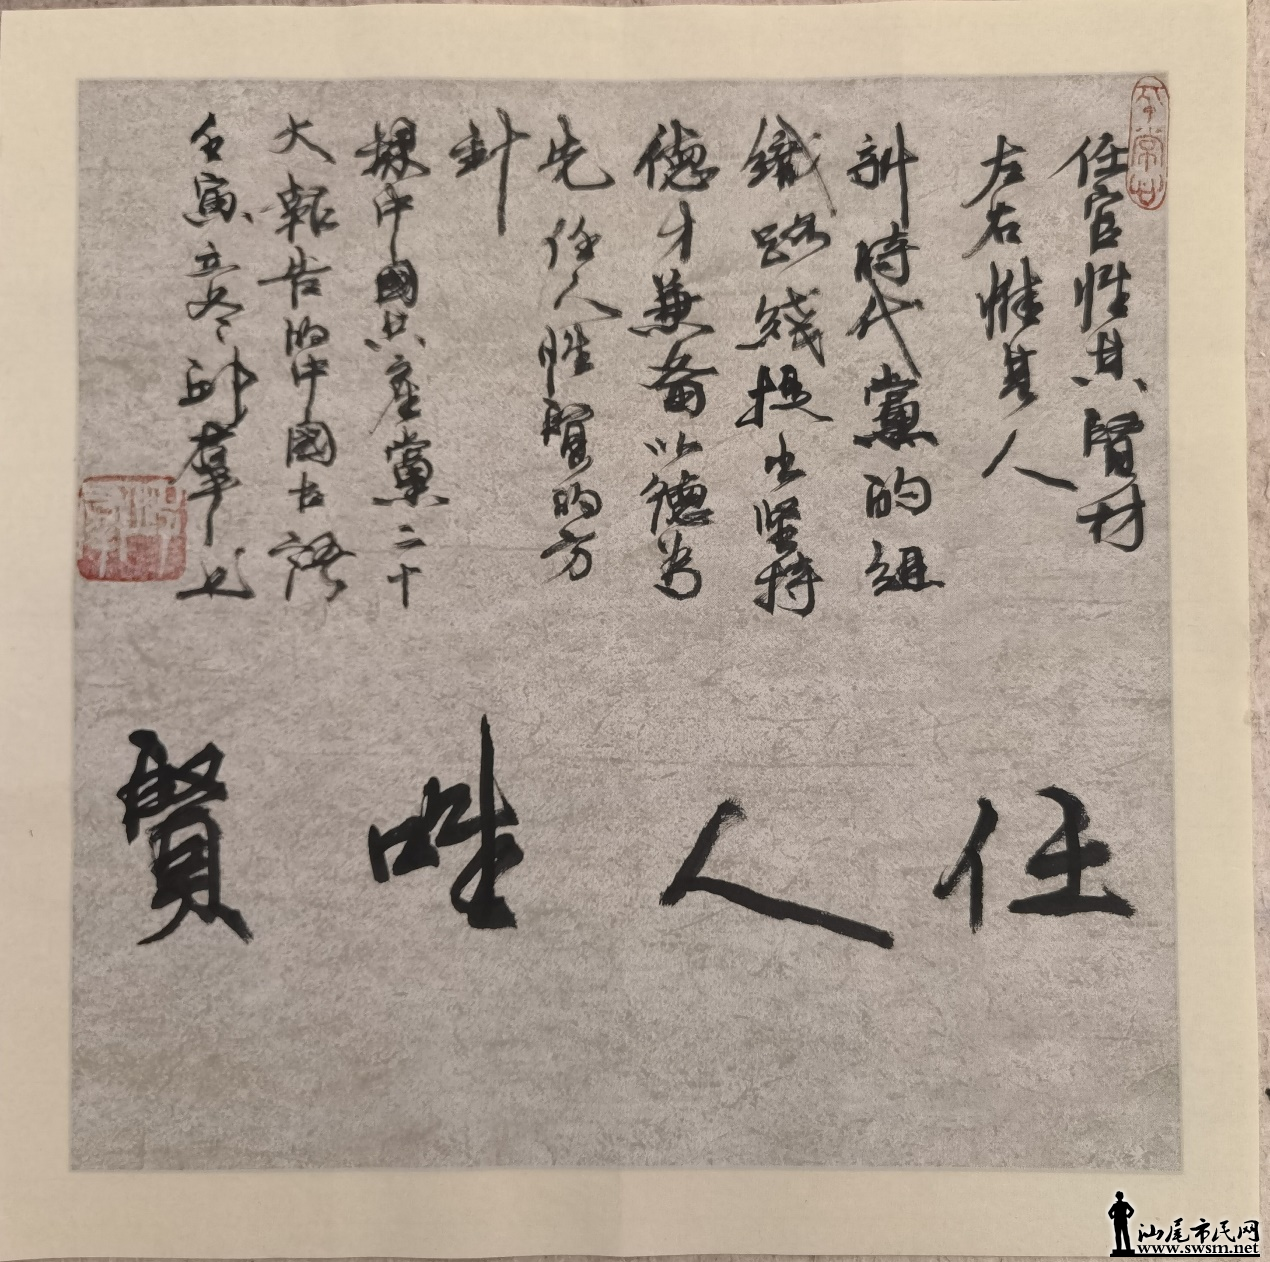 任官惟其賢材
左右惟其人
新時代黨的組
織路綫提出坚持
德才兼备以德为
先任人唯賢的方
針
据中國共產黨二十
大報告的中國古語
壬寅立冬
任人唯賢
汕尾市民网
www.swsm.net